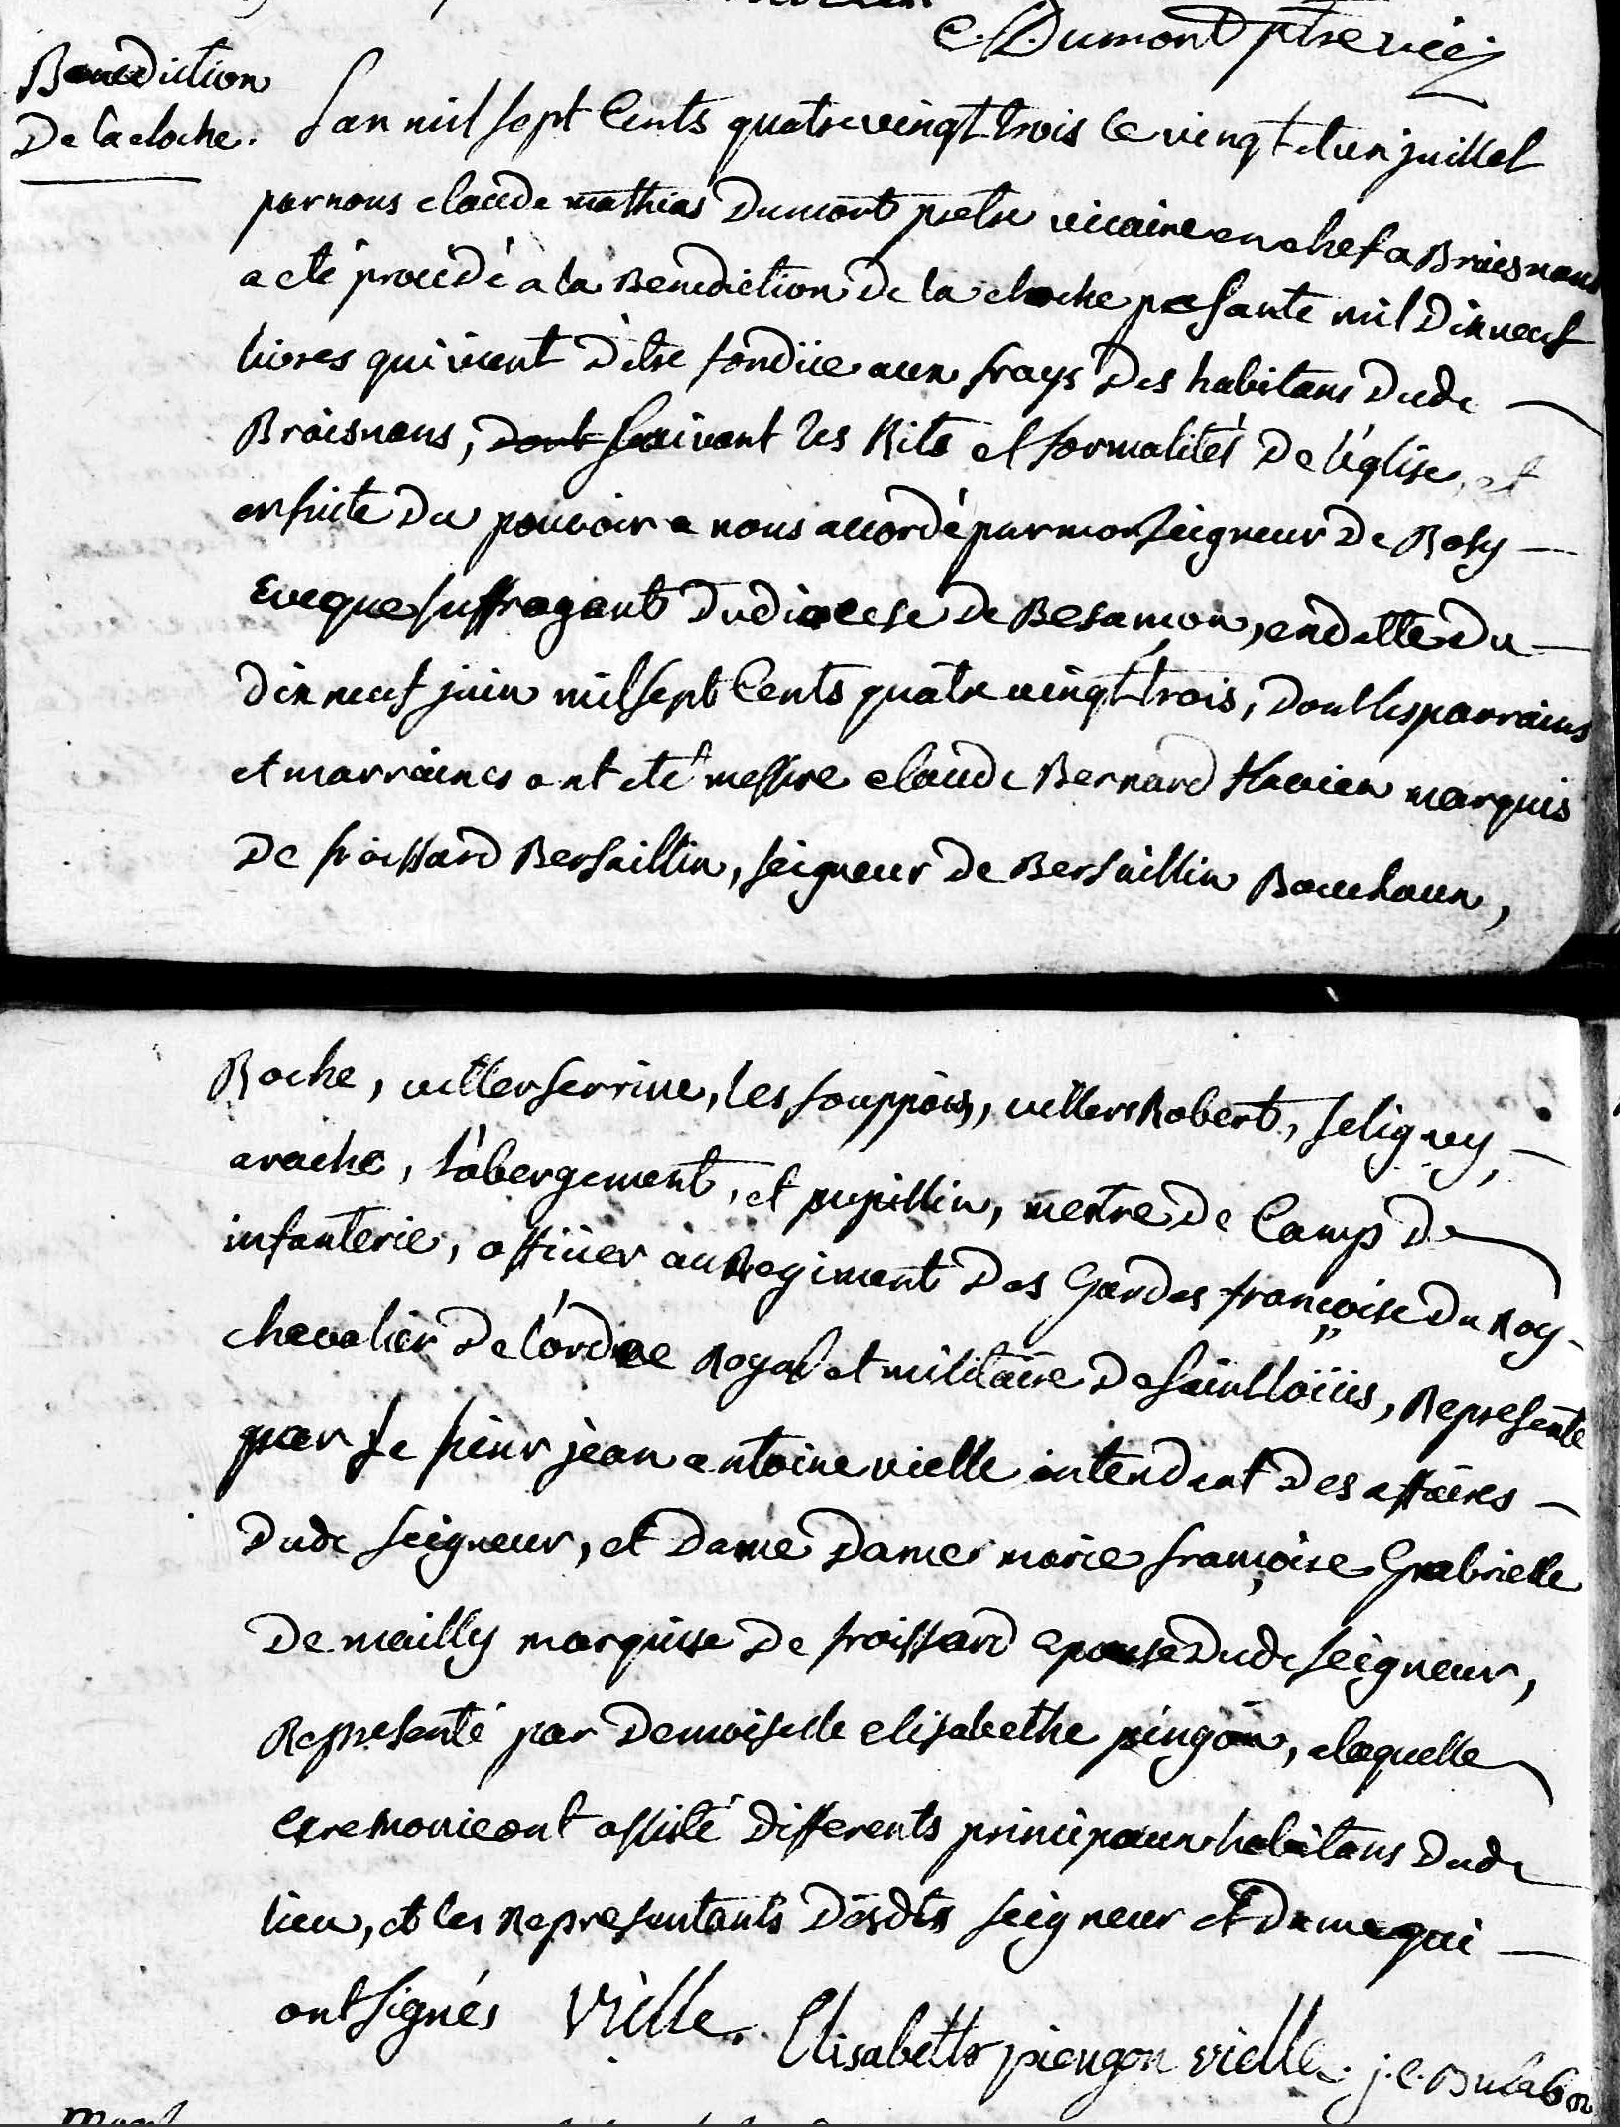 C. Dumont ptre vic
Benediction
De la cloche.
L'an mil sept Cents quatre vingt trois le vingt et un juillet
par nous claude mathias Dumont pretre vicaire en chef a Broisnans
a eté procedé a la Benediction de la cloche pesante mil dix neuf
livres qui vient d'etre fondüe aux frays des habitans dudt
Broisnans, dont suivant les Rits et formalités de l'église, et
ensuite du pouvoir a nous accordé par monseigneur de Rosy
Eveque suffragant du diocese de Besançon, en datte du
dix neuf juin mil sept Cents quatre vingt trois, dont les parrains
et marraines ont eté messire claude Bernard flavien marquis
De froissard Bersaillin, seigneur de Bersaillin Bouchaux,
Roche, villerserrine, les souppois, villers Robert, seligney,
arache, l'abergement, et pupillin, mestre de Camp de
infanterie, officier au Regiment des Gardes françoise du Roy
chevalier de l'ordre Royal et militaire de saint loüis, Representé
par le sieur jean antoine vielle intendant des affaires
dudt seigneur, et Dame Dame marie françoise Gabrielle
De mailly marquise de froissard epouse dudt seigneur,
Representé par Demoiselle elisabethe pingon, a laquelle
ceremonie ont assisté differents principaux habitans dudt
lieu, et les Representants desdts seigneur et Dame qui
ont signés Vielle. Elisabette piengon vielle. j. C. Bulabon